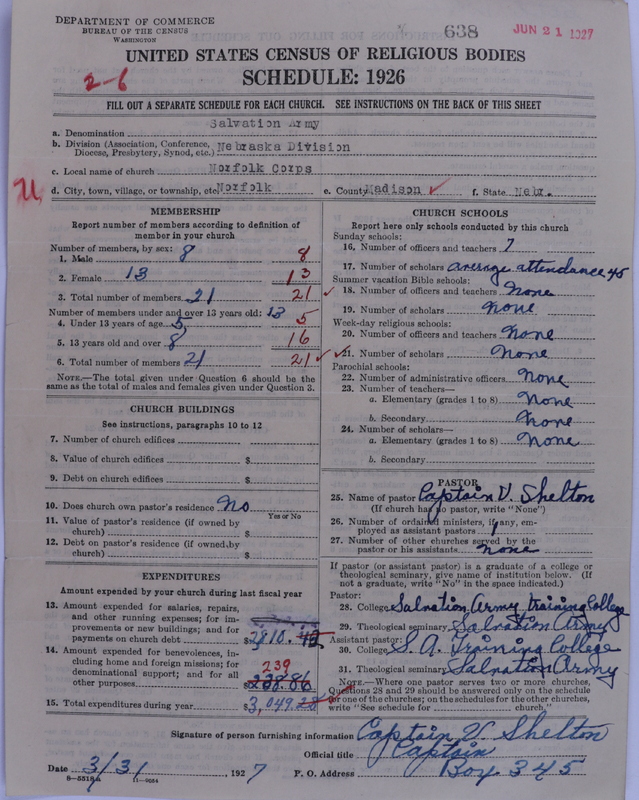 DEPARTMENT OF COMMERCE
BUREAU OF THE CENSUS
WASHINGTON
638
JUN 21 1927
UNITED STATES CENSUS OF RELIGIOUS BODIES
2-6
SCHEDULE: 1926
FILL OUT A SEPARATE SCHEDULE FOR EACH CHURCH. SEE INSTRUCTIONS ON THE BACK OF THIS SHEET
a. Denomination Salvation Army
b. Division (Association, Conference, Diocese, Presbytery, Synod, etc.) Nebraska Division
c. Local name of church Norfolk Corps
d. City, town, village, or township, etc. Norfolk e. County Madison f. State Nebr.
MEMBERSHIP
Report number of members according to definition of
member in your church
Number of members, by sex:
1. Male 8 8
2. Female 13 13
3. Total number of members 21 21
Number of members under and over 13 years old: 13
4. Under 13 years of age 5 5
5. 13 years old and over 8 16
6. Total number of members 21 21
NOTE.—The total given under Question 6 should be the
same as the total of males and females given under Question 3.
CHURCH BUILDINGS
See instructions, paragraphs 10 to 12
7. Number of church edifices
8. Value of church edifices $
9. Debt on church edifices $
10. Does church own pastor's residence? No
Yes or No
11. Value of pastor's residence (if owned by
church) $
12. Debt on pastor's residence (if owned by
church) $
EXPENDITURES
Amount expended by your church during last fiscal year
13. Amount expended for salaries, repairs,
and other running expenses; for im-
provements or new buildings; and for
payments on church debt $ 2810.42
14. Amount expended for benevolences, in-
cluding home and foreign missions; for
denominational support; and for all 239
other purposes 238.86
15. Total expenditures during year $ 3,049.28
CHURCH SCHOOLS
Report here only schools conducted by this church
Sunday schools:
16. Number of officers and teachers 7
17. Number of scholars average attendance 45
Summer vacation Bible schools:
18. Number of officers and teachers None
19. Number of scholars None
Week-day religious schools:
20. Number of officers and teachers None
21. Number of scholars None
Parochial schools:
22. Number of administrative officers None
23. Number of teachers—
a. Elementary (grades 1 to 8) None
b. Secondary None
24. Number of scholars—
a. Elementary (grades 1 to 8) None
b. Secondary
PASTOR
25. Name of pastor Captain V. Shelton
(If church has no pastor, write "None")
26. Number of ordained ministers, if any, em-
ployed as assistant pastors 1
27. Number of other churches served by the
pastor or his assistants none
If pastor (or assistant pastor) is a graduate of a college or
theological seminary, give name of institution below. (If
not a graduate, write "No" in the space indicated.)
Pastor:
28. College Salvation Army Training College
29. Theological seminary Salvation Army
Assistant pastor:
30. College S. A. Training College
31. Theological seminary Salvation Army
NOTE.—Where one pastor serves two or more churches,
Questions 28 and 29 should be answered only on the schedule
for one of the churches; on the schedules for the other churches,
write "See schedule for church."
Signature of person furnishing information Captain V. Shelton
Official title Captain
Date 3/31 1927 P. O. Address Box 345
8—5518a 11—9684